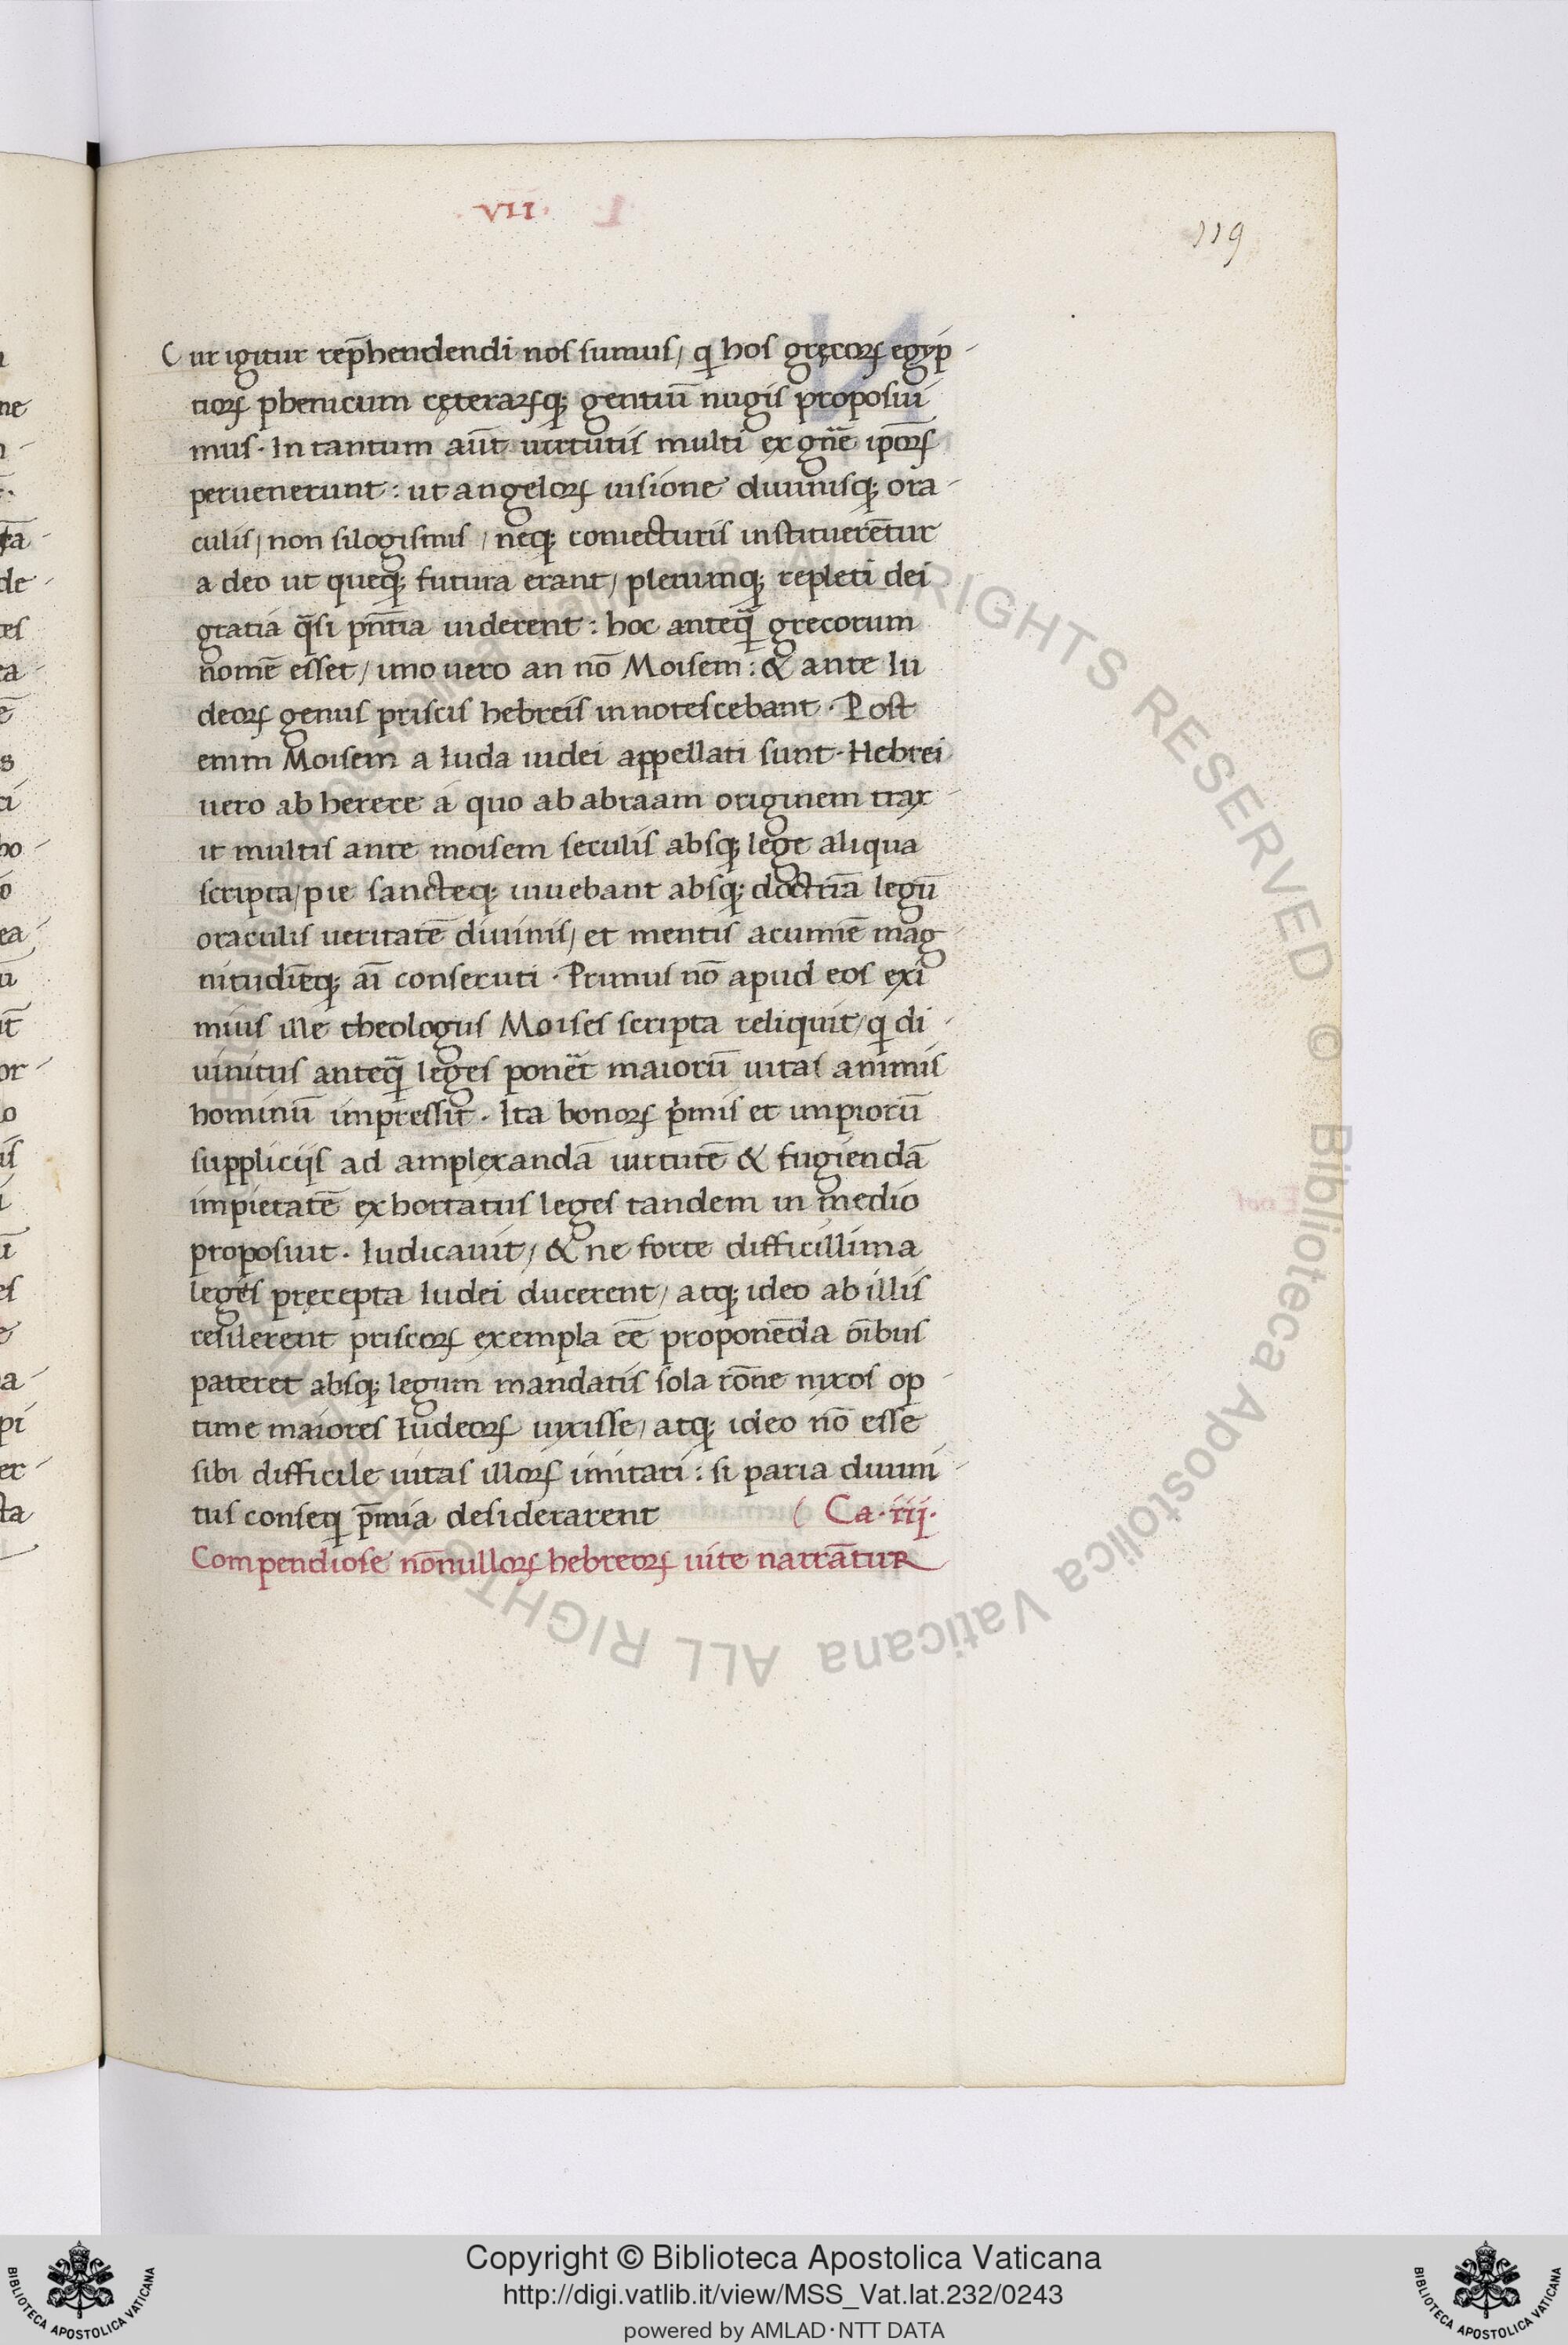 ·VII·
119
Cur igitur rep̄hendendi nos sumus/ q̇ hos gręcorꝝ egyp-
tiorꝝ phenicum cęterarꝝq; gentiū nugis proposui
mus· In tantum aūt uirtutis multi ex gn̄e ip̄orꝝ
peruenerunt: ut angelorꝝ uisione diuinisq; ora-
culis/ non silogismis/ neq; coniecturis instituerētur
a deo ut queq; futura erant/ plerumq; repleti dei
gratia q̄si pn̄tia uiderent: hoc anteq̄ grecorum
nomē esset/ uno uero an nō Moisem: & ante Iu
deorꝝ genus priscis hebreis innotescebant· Post
enim Moisem a Iuda iudei appellati sunt· Hebrei
uero ab herere a quo ab abraam originem trax-
it multis ante moisem seculis absq; lege aliqua
scripta/ pie sancteq; uiuebant absq; doctrīa legū
oraculis ueritatē diuinis/ et mentis acumīe mag-
nitudīeq; aī consecuti· Primus nō apud eos exi
mius ille theologus Moises scripta reliquit/ q̇ di-
uinitus anteq̄ leges ponēt maiorū uitas animis
hominū impressit· Ita bonorꝝ p̄mis et impiorū
suppliciis ad amplexandā uirtutē & fugiendā
impietatē exhortatus leges tandem in medio
proposuit· Iudicauit/ & ne forte difficillima
leges pręcepta Iudei ducerent/ atq; ideo ab illis
resilerent priscorꝝ exempla eē proponēda oībus
pateret absq; legum mandatis sola rōne nixos op-
time maiores Iudeorꝝ uixisse/ atq; ideo nō esse
sibi difficile uitas illorꝝ imitari: si paria diuini-
tus conseq̇ p̄mia desiderarent ( Ca·iij·
Compendiose nōnullorꝝ hebreorꝝ uite narrātur
© Biblioteca Apostolica Vaticana ALL RIGHTS RESERVED
Copyright © Biblioteca Apostolica Vaticana
http://digi.vatlib.it/view/MSS_Vat.lat.232/0243
powered by AMLAD·NTT DATA
BIBLIOTECA APOSTOLICA VATICANA
BIBLIOTECA APOSTOLICA VATICANA